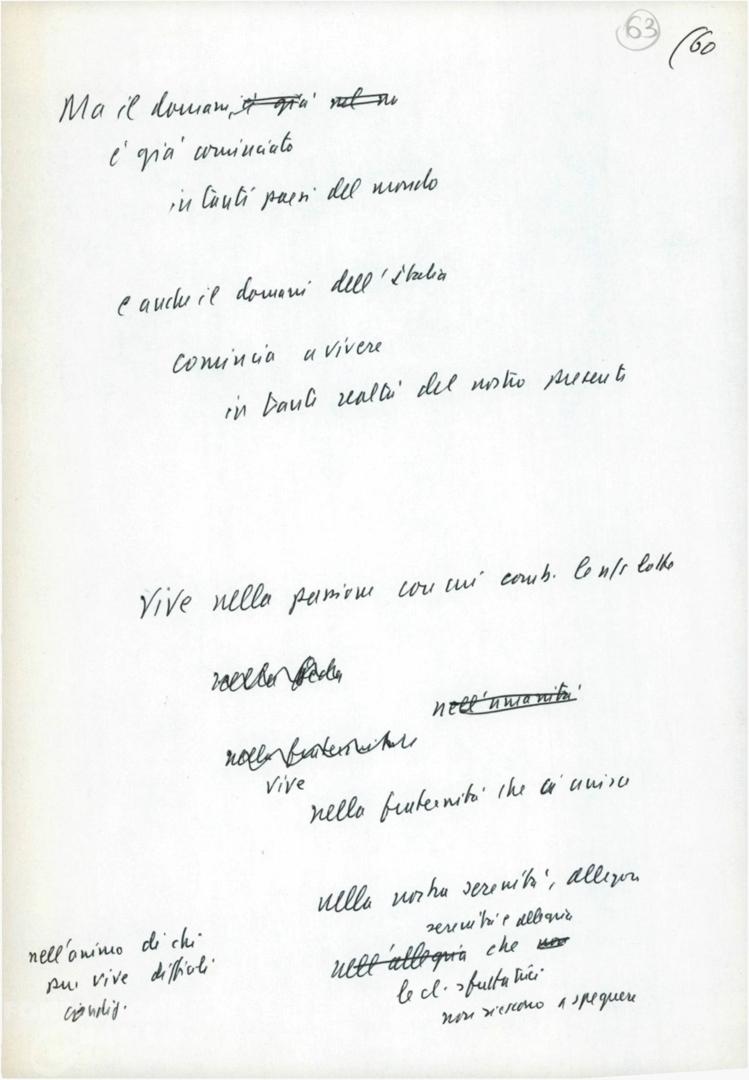 63
(60
Ma il domani, è già nel no
è già cominciato
in tanti paesi del mondo
e anche il domani dell'Italia
comincia a vivere
in tanti realtà del nostro presente
Vive nella passione con cui comb. le n/s lotte
nella
nell'umanità
nella fraternità
vive
nella fraternità che ci unisce
nella nostra serenità, allegria
serenità e allegria
nell'allegria che non
le cl. sfruttatrici
non riescono a spegnere
nell'animo di chi
pur vive difficili
condiz.